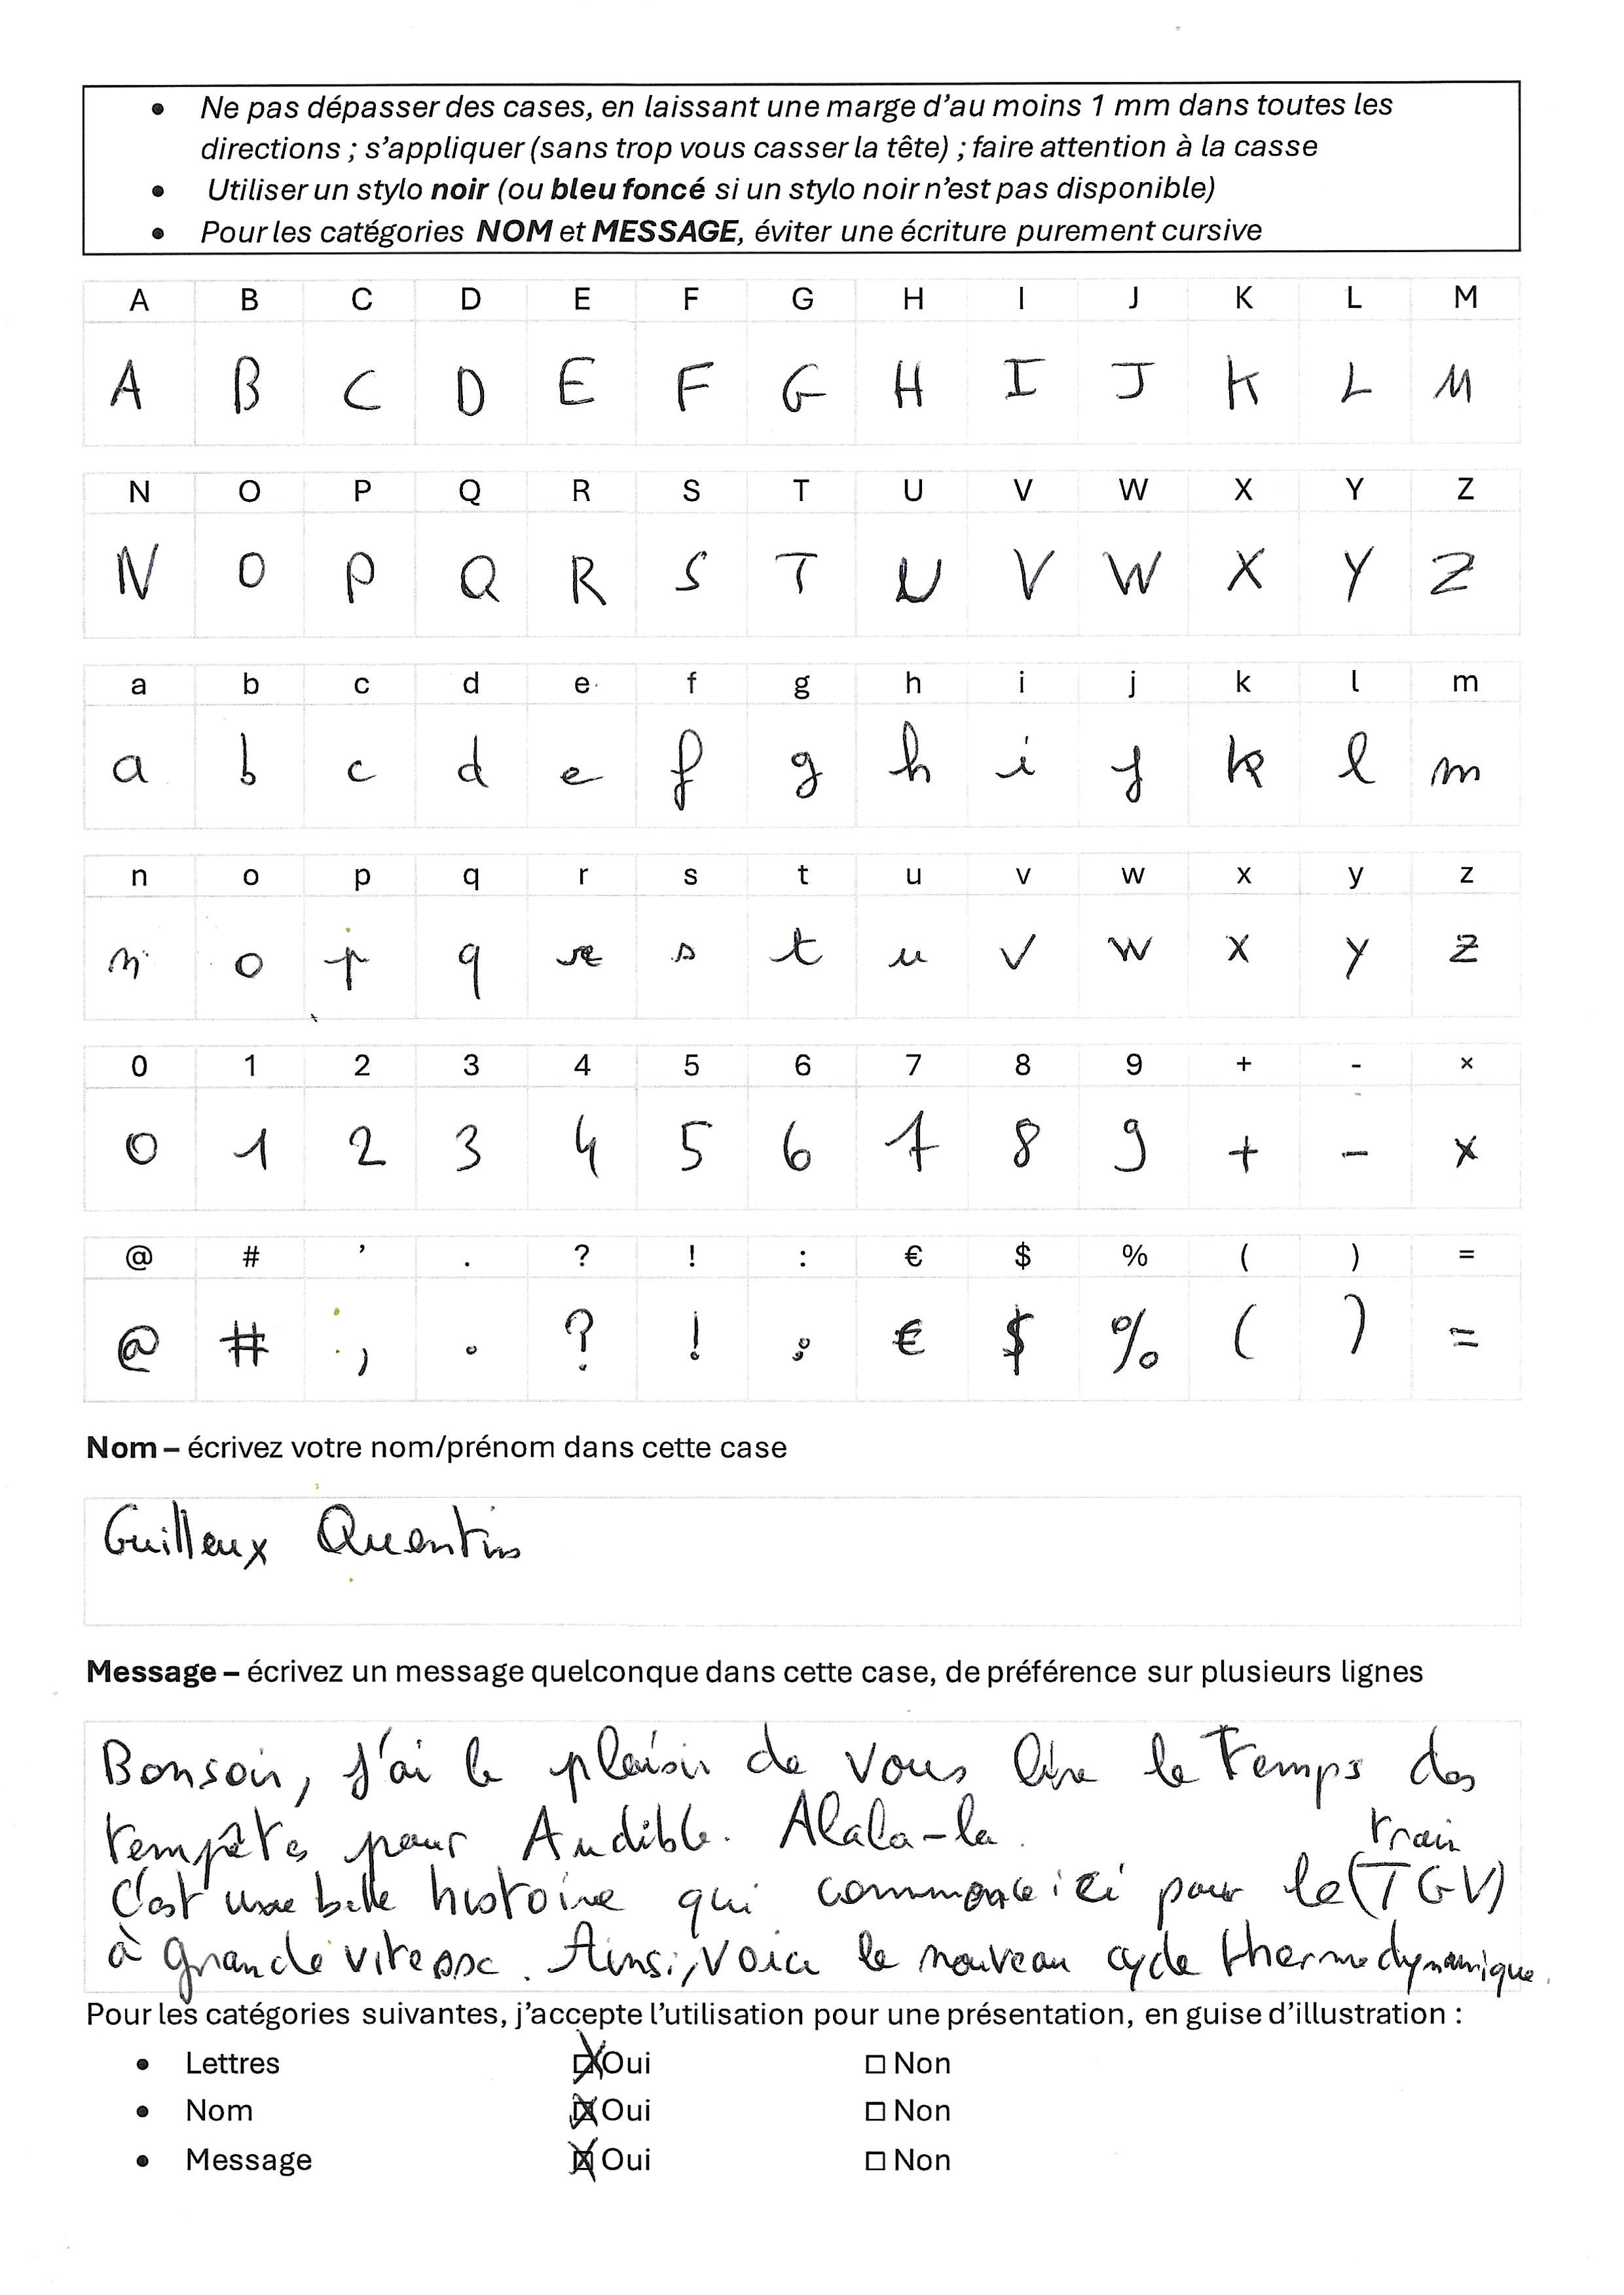 • Ne pas dépasser des cases, en laissant une marge d’au moins 1 mm dans toutes les
directions ; s’appliquer (sans trop vous casser la tête) ; faire attention à la casse
• Utiliser un stylo noir (ou bleu foncé si un stylo noir n’est pas disponible)
• Pour les catégories NOM et MESSAGE, éviter une écriture purement cursive
A B C D E F G H I J K L M
A B C D E F G H I J K L M
N O P Q R S T U V W X Y Z
N O P Q R S T U V W X Y Z
a b c d e f g h i j k l m
a b c d e f g h i j k l m
n o p q r s t u v w x y z
n o p q r s t u v w x y z
0 1 2 3 4 5 6 7 8 9 + - ×
0 1 2 3 4 5 6 7 8 9 + - ×
@ # ’ . ? ! : € $ % ( ) =
@ # , . ? ! : € $ % ( ) =
Nom – écrivez votre nom/prénom dans cette case
Guilleux Quentin
Message – écrivez un message quelconque dans cette case, de préférence sur plusieurs lignes
Bonsoir, j'ai le plaisir de vous lire le Temps des
tempêtes pour Audible. Alala-la.
train
C'est une belle histoire qui commence ici pour le (TGV)
à grande vitesse. Ainsi, voici le nouveau cycle thermodynamique.
Pour les catégories suivantes, j’accepte l’utilisation pour une présentation, en guise d’illustration :
• Lettres ☒ Oui ☐ Non
• Nom ☒ Oui ☐ Non
• Message ☒ Oui ☐ Non